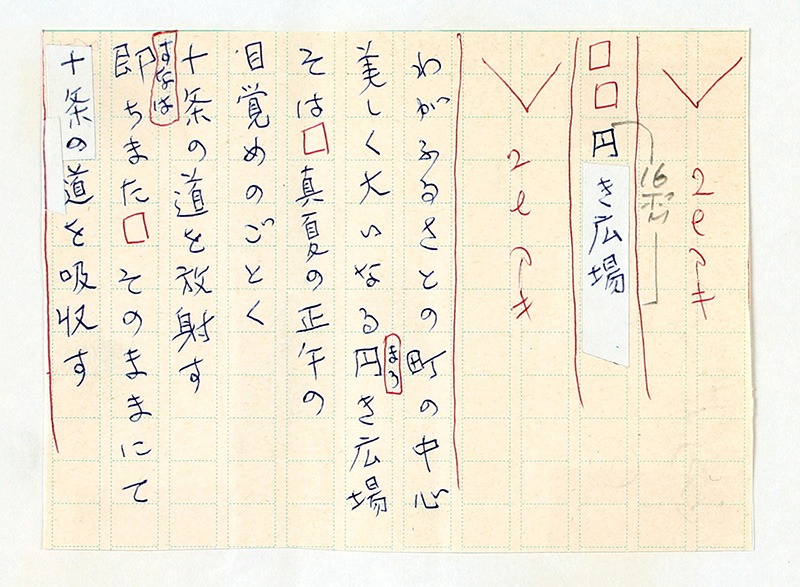 2lアキ
□□円き広場
16ポ
2lアキ
わがふるさとの町の中心
美しく大いなる円き広場
まろ
そは□真夏の正午の
目覚めのごとく
十条の道を放射す
すなは
即ちまた□そのままにて
十条の道を吸収す